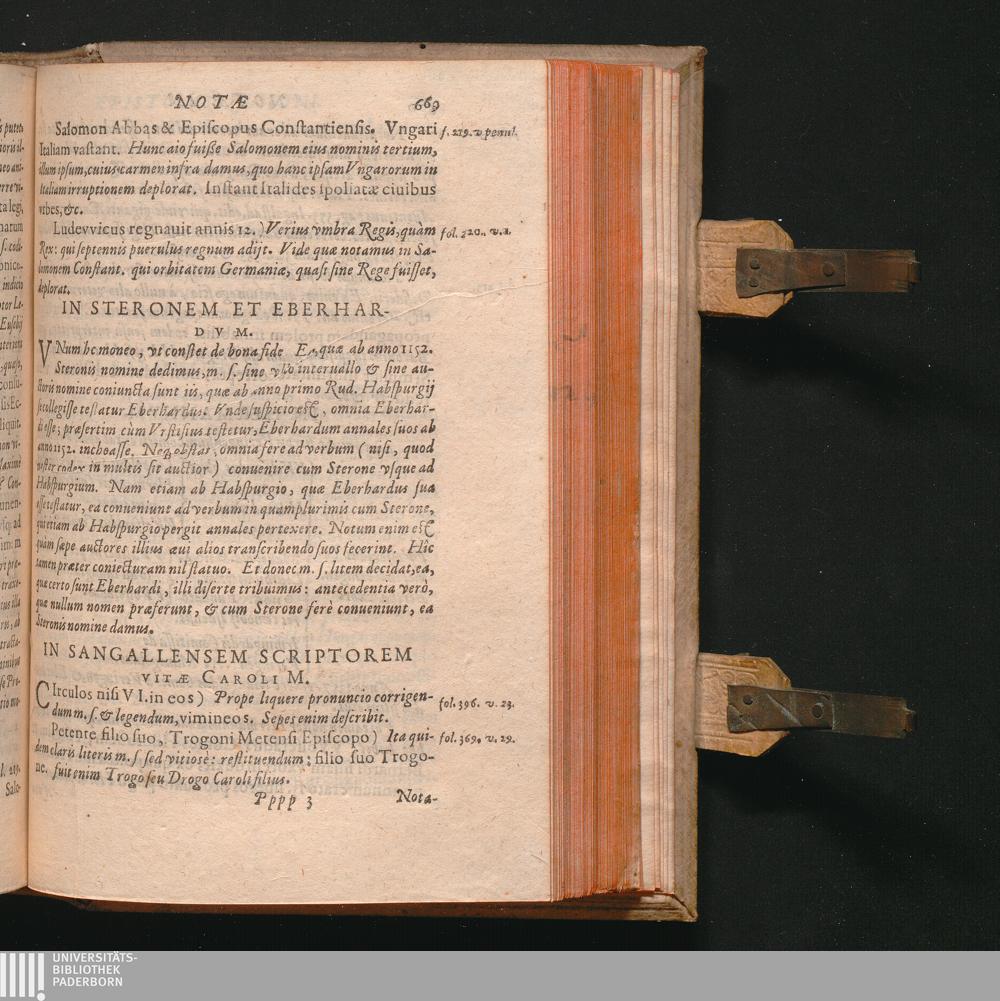 NOTÆ 669
Salomon Abbas & Episcopus Constantiensis. Vngari f. 219. v. penul.
Italiam vastant. Hunc aio fuiße Salomonem eius nominis tertium,
illum ipsum, cuius carmen infra damus, quo hanc ipsam Vngarorum in
Italiam irruptionem deplorat. Instant Italides spoliatæ ciuibus
vrbes, &c.
Ludevvicus regnauit annis 12.) Verius vmbra Regis, quàm fol. 220. v. 1.
Rex: qui septennis puerulus regnum adijt. Vide quæ notamus in Sa-
lomonem Constant. qui orbitatem Germaniæ, quasi sine Rege fuisset,
deplorat.
IN STERONEM ET EBERHAR-
DVM.
VNum hc moneo, vt constet de bona fide Ea, quæ ab anno 1152.
Steronis nomine dedimus, m. s. sine vllo interuallo & sine au-
ctoris nomine coniuncta sunt iis, quæ ab anno primo Rud. Habspurgij
se collegisse testatur Eberhardus. Vnde suspicio est, omnia Eberhar-
di esse; præsertim cùm Vrstisius testetur, Eberhardum annales suos ab
anno 1152. inchoasse. Neq; obstat, omnia fere ad verbum (nisi, quod
noster codex in multis sit auctior) conuenire cum Sterone vsque ad
Habspurgium. Nam etiam ab Habspurgio, quæ Eberhardus sua
esse testatur, ea conueniunt ad verbum in quamplurimis cum Sterone,
qui etiam ab Habspurgio pergit annales pertexere. Notum enim est
quàm sæpe auctores illius æui alios transcribendo suos fecerint. Hîc
tamen præter coniecturam nil statuo. Et donec m. s. litem decidat, ea,
quæ certo sunt Eberhardi, illi diserte tribuimus: antecedentia verò,
quæ nullum nomen præferunt, & cum Sterone ferè conueniunt, ea
Steronis nomine damus.
IN SANGALLENSEM SCRIPTOREM
VITÆ CAROLI M.
CIrculos nisi VI. in eos) Prope liquere pronuncio corrigen- fol. 396. v. 23.
dum m. s. & legendum, vimineos. Sepes enim describit.
Petente filio suo, Trogoni Metensi Episcopo) Ita qui- fol. 369. v. 29.
dem claris literis m. s sed vitiosè: restituendum; filio suo Trogo-
ne. fuit enim Trogo seu Drogo Caroli filius.
Pppp 3 Nota-
UNIVERSITÄTS-
BIBLIOTHEK
PADERBORN